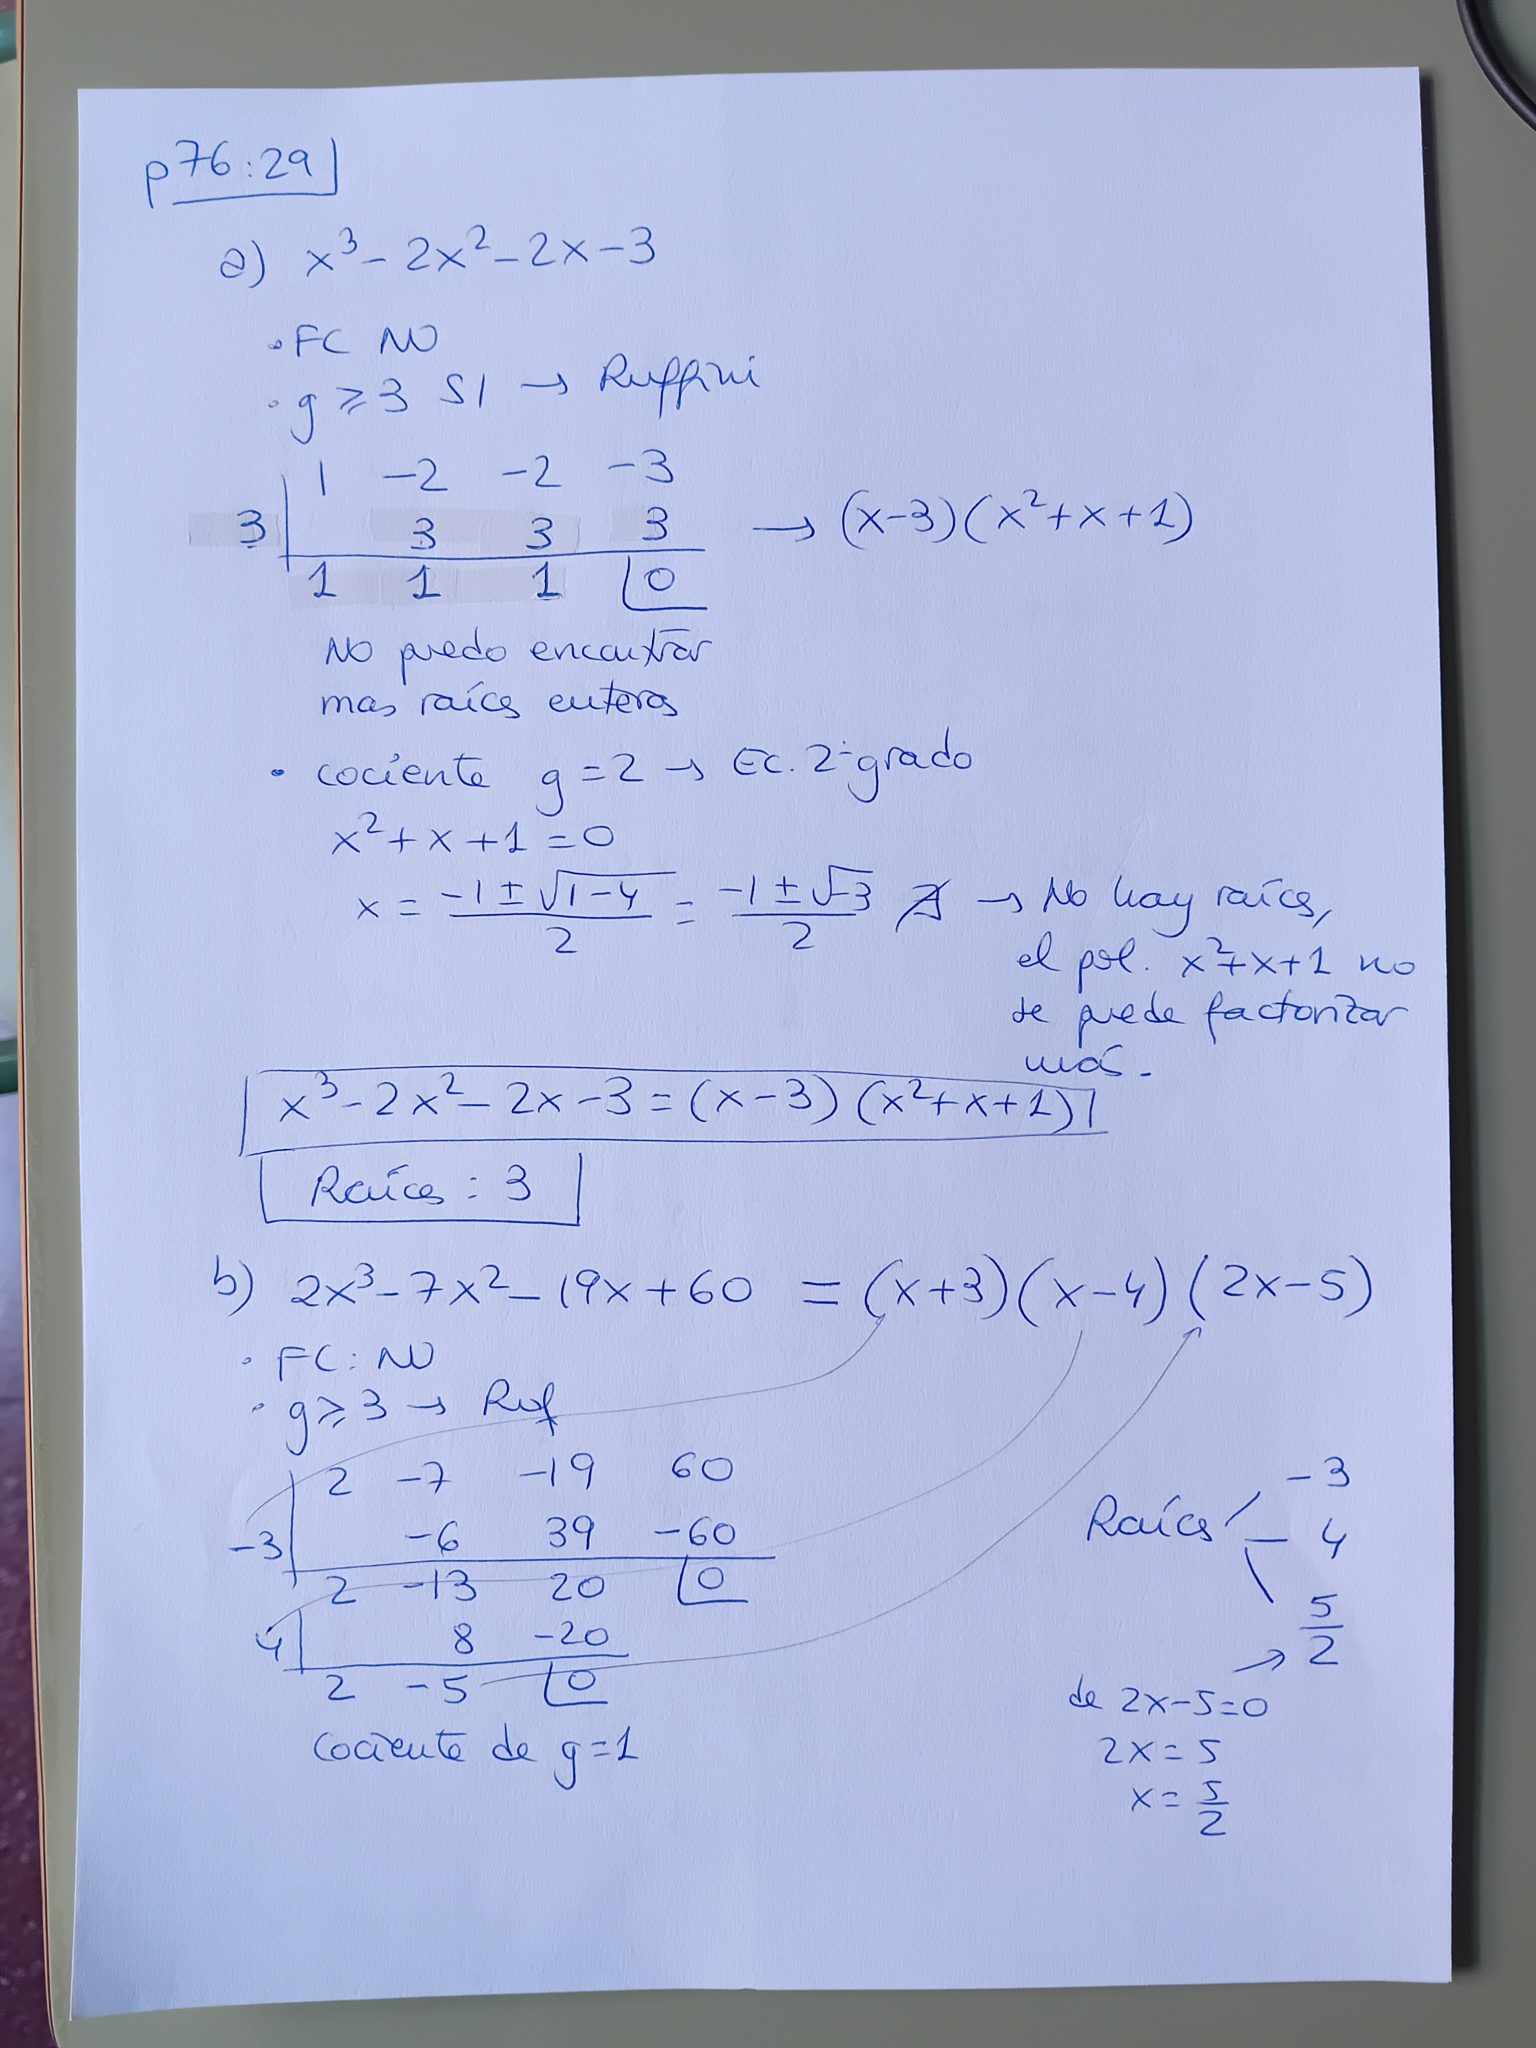 p76:29
a) x³-2x²-2x-3
• FC NO
• g≥3 SI → Ruffini
1 -2 -2 -3
3 3 3 3 → (x-3)(x²+x+1)
1 1 1 0
No puedo encontrar
mas raíces enteras
• cociente g=2 → Ec. 2º grado
x²+x+1=0
x = (-1±√1-4)/2 = (-1±√-3)/2 ∄ → No hay raíces,
el pol. x²+x+1 no
se puede factorizar
más.
x³-2x²-2x-3=(x-3)(x²+x+1)
Raíces: 3
b) 2x³-7x²-19x+60 = (x+3)(x-4)(2x-5)
• FC: NO
• g≥3 → Ruf
2 -7 -19 60
-3 -6 39 -60
2 -13 20 0
4 8 -20
2 -5 0
cociente de g=1
Raíces -3
4
5/2
de 2x-5=0
2x=5
x=5/2